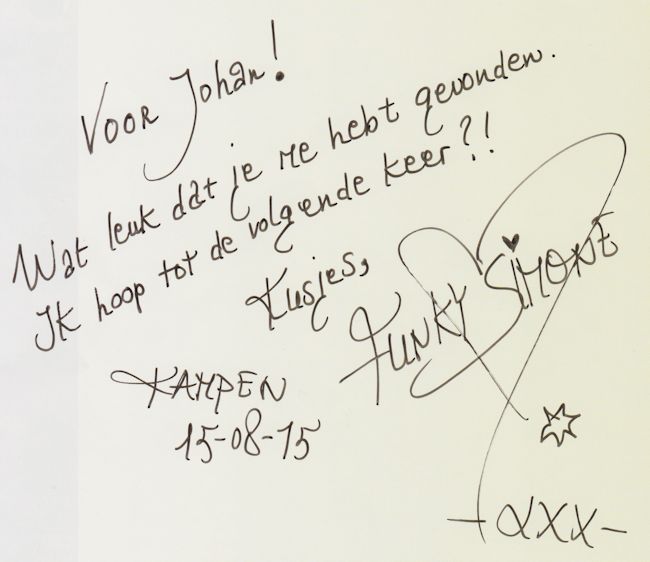 Voor Johan!
Wat leuk dat je me hebt gevonden.
Ik hoop tot de volgende keer?!
Kusjes,
FUNKY SIMONE
KAMPEN
15-08-15
-XXX-